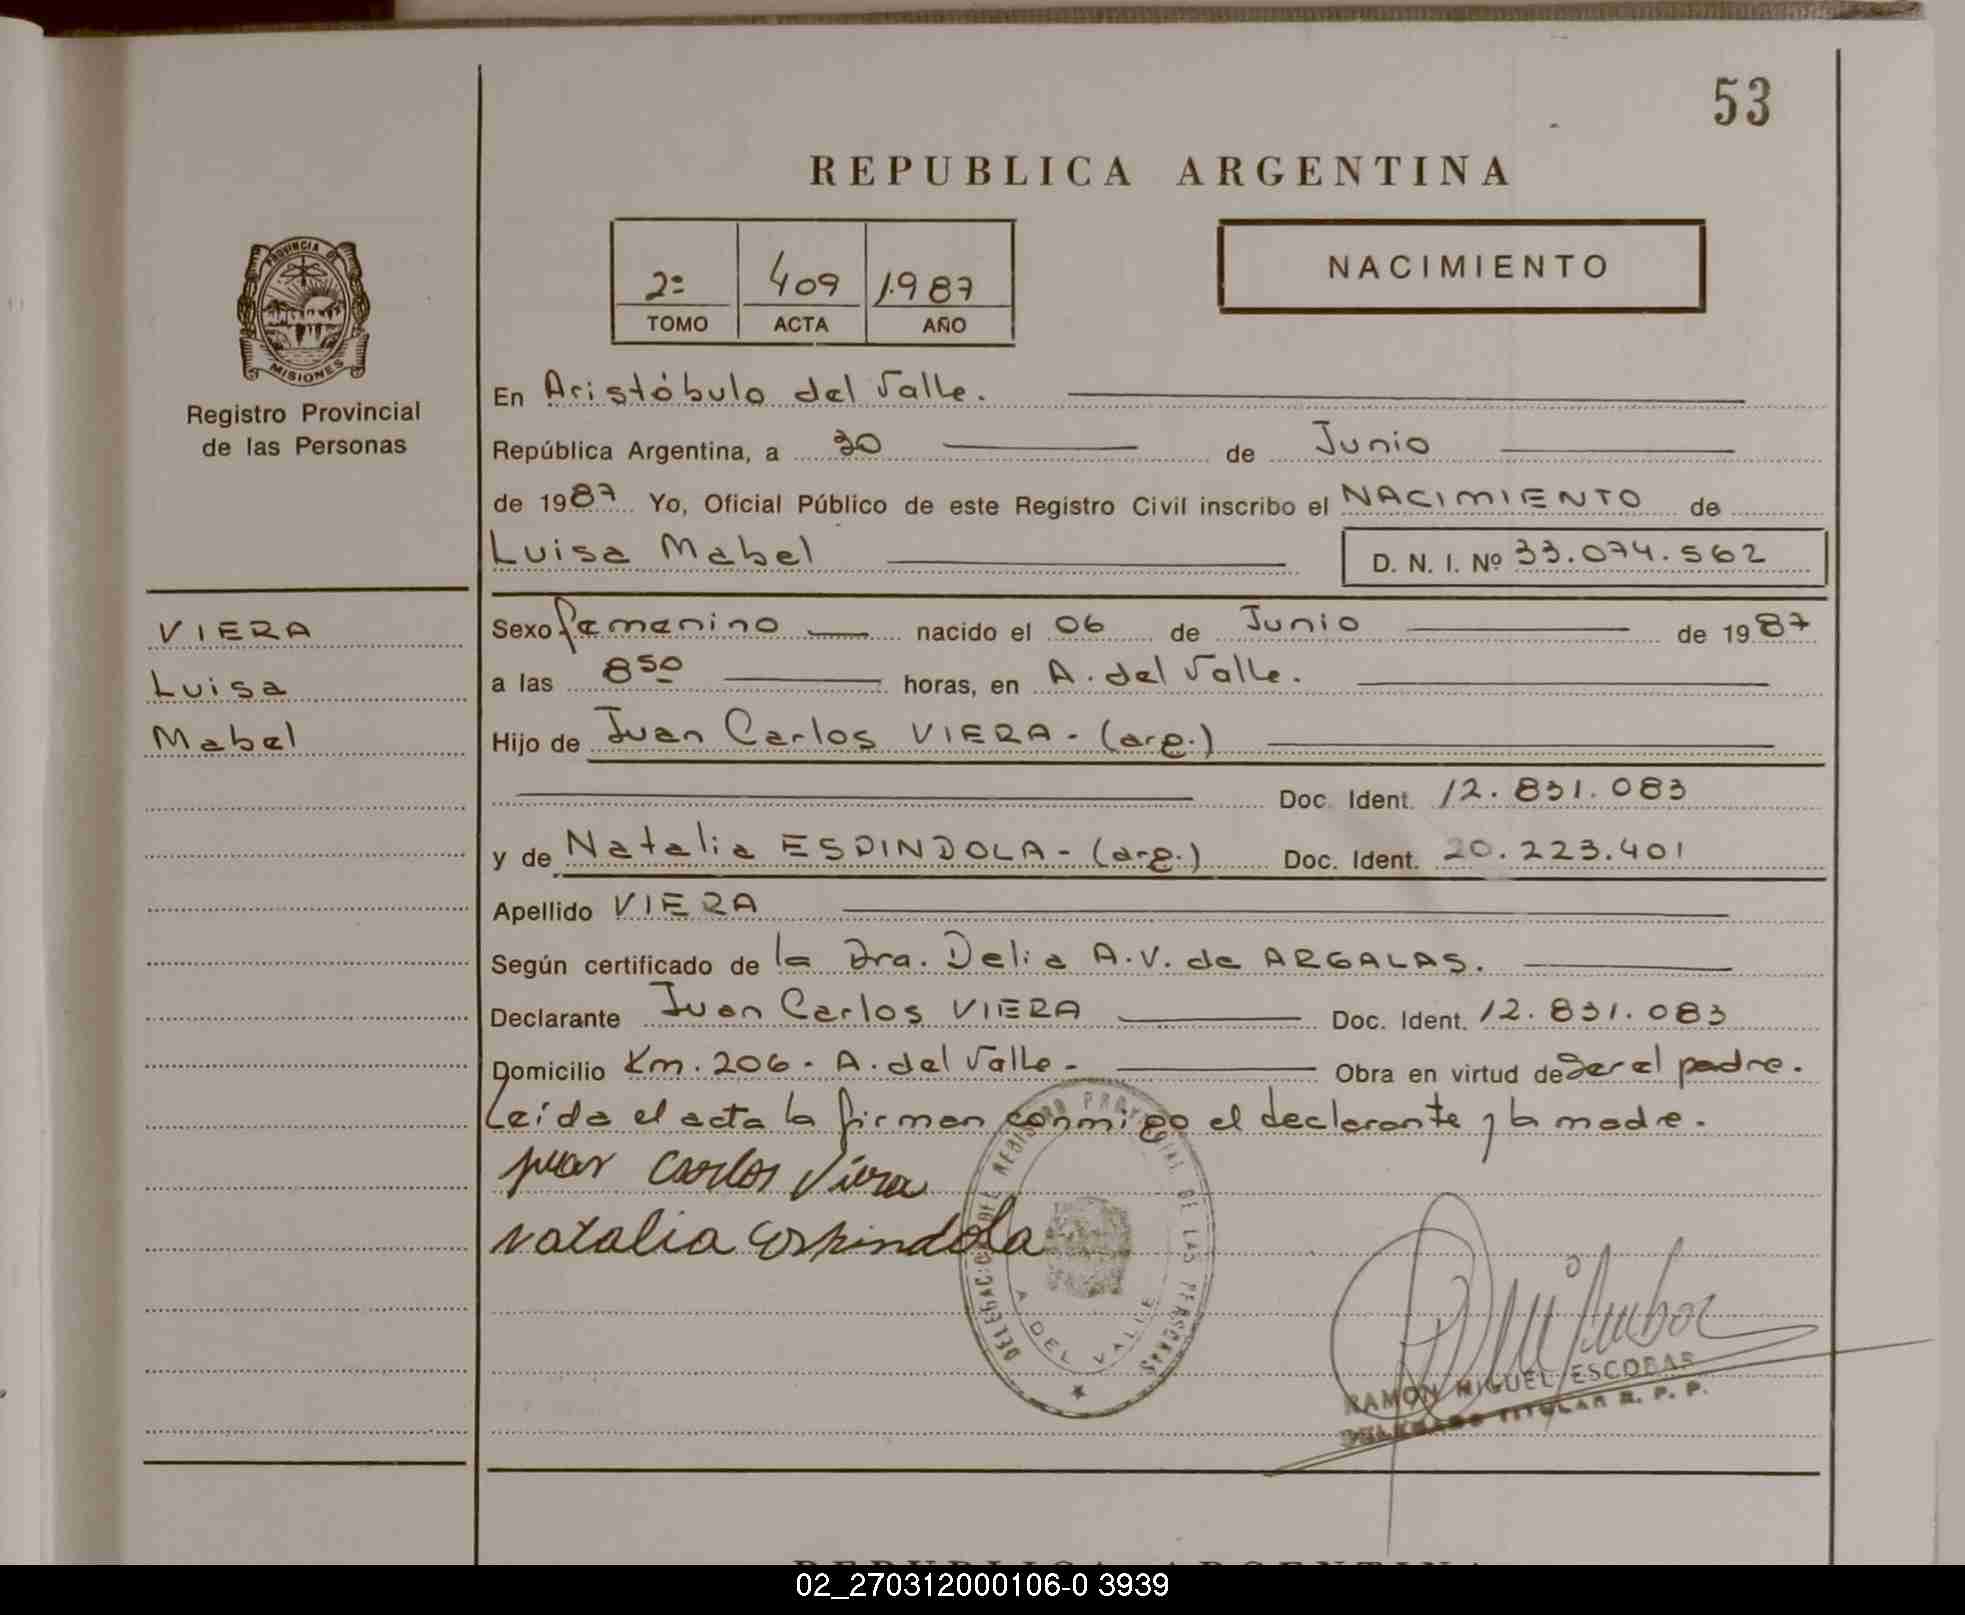 53
REPUBLICA ARGENTINA
2º 409 1.987
TOMO ACTA AÑO
NACIMIENTO
PROVINCIA DE
MISIONES
Registro Provincial
de las Personas
En Aristóbulo del Valle.
República Argentina, a 30 de Junio
de 1987 Yo, Oficial Público de este Registro Civil inscribo el NACIMIENTO de
Luisa Mabel D. N. I. Nº 33.074.562
VIERA
Luisa
Mabel
Sexo femenino nacido el 06 de Junio de 1987
a las 8 50 horas, en A. del Valle.
Hijo de Juan Carlos VIERA - (arg.)
Doc. Ident. 12.831.083
y de Natalia ESPINDOLA - (arg.) Doc. Ident. 20.223.401
Apellido VIERA
Según certificado de la Dra. Delia A.V. de ARGALAS.
Declarante Juan Carlos VIERA Doc. Ident. 12.831.083
Domicilio Km. 206 - A. del Valle - Obra en virtud de Ser el padre.
Leída el acta la firman conmigo el declarante y la madre.
juan Carlos Viera
natalia Espindola
DELEGAC. DEL REGISTRO PROVINCIAL DE LAS PERSONAS
A. DEL VALLE
RAMON MIGUEL ESCOBAR
DELEGADO TITULAR R. P. P.
REPUBLICA ARGENTINA
02_270312000106-0 3939